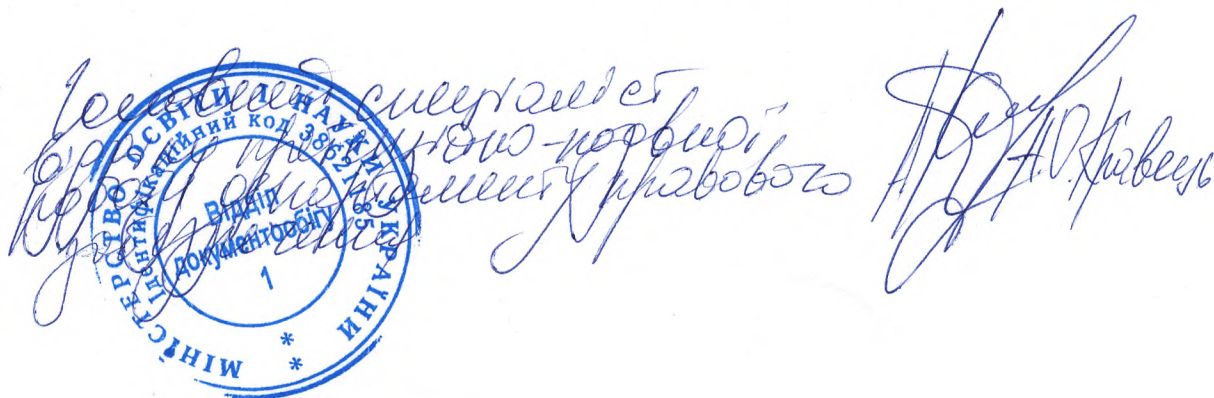 Головний спеціаліст
відділу претензійно-позовної
роботи департаменту правового
забезпечення
А.О. Кравець
МІНІСТЕРСТВО ОСВІТИ І НАУКИ УКРАЇНИ
Ідентифікаційний код 38621185
Відділ
документообігу
1